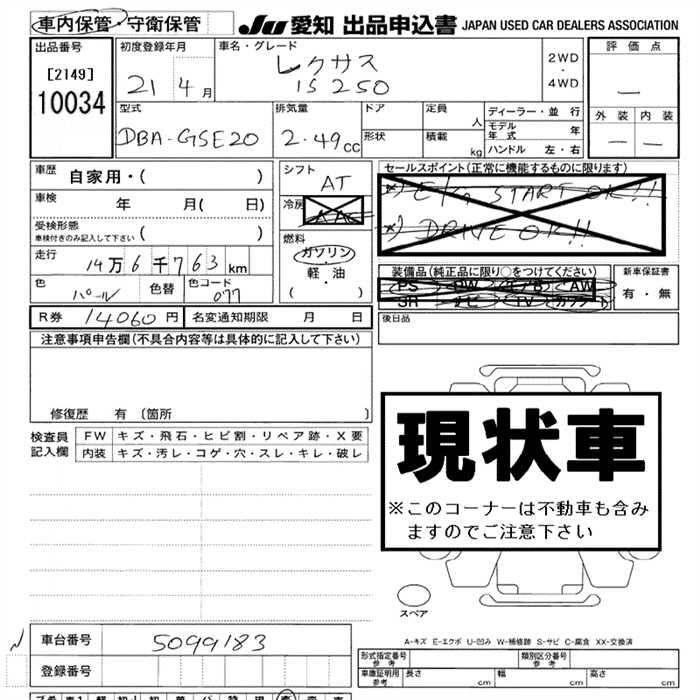 車内保管・守衛保管 JU 愛知 出品申込書 JAPAN USED CAR DEALERS ASSOCIATION
出品番号 初度登録年月 車名・グレード 評価点
[2149] 21 4月 レクサス 2WD
・
10034 IS250 4WD —
外装 内装
型式 排気量 ドア 定員 人 ディーラー・並行
DBA-GSE20 2.49cc 形状 積載 kg モデル年式 年 — —
ハンドル 左・右
車歴 自家用・( ) シフト AT セールスポイント(正常に機能するものに限ります)
車検 年 月( 日) 冷房 AAC *) E/G START OK!!
受検形態
車検付きのみ記入して下さい ( ) *) DRIVE OK!!
走行 14万6千763km 燃料 ガソリン
・
軽・油
( ・ )
装備品(純正品に限り○をつけてください) 新車保証書
色 パール 色替 色コード 077 PS PW エアB AW 有・無
SR ナビ TV カワシート
R券 14060円 名変通知期限 月 日 後日品
注意事項申告欄(不具合内容等は具体的に記入して下さい)
修復歴 有 〔箇所 〕
検査員記入欄 FW キズ・飛石・ヒビ割・リペア跡・X要
内装 キズ・汚レ・コゲ・穴・スレ・キレ・破レ
現状車
※このコーナーは不動車も含み
ますのでご注意下さい
スペア
A-キズ E-エクボ U-凹み W-補修跡 S-サビ C-腐食 XX-交換済
車台番号 5099183
登録番号
型式指定番号 参考 類別区分番号 参考
車庫証明用 参考 長さ cm 幅 cm 高さ cm